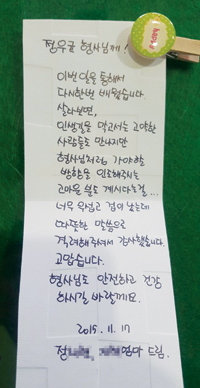 정우균 형사님께
이번 일을 통해서
다시한번 배웠습니다.
살다보면,
인생길을 막고서는 고약한
사람들도 만나지만
형사님처럼 가야할
방향을 인도해주는
고마운 분도 계시다는걸...
너무 무섭고 겁이 났는데
따뜻한 말씀으로
격려해주셔서 감사했습니다.
고맙습니다.
형사님도 안전하고 건강
하시길 바랄께요.
2015. 11. 17
정 엄마 드림.